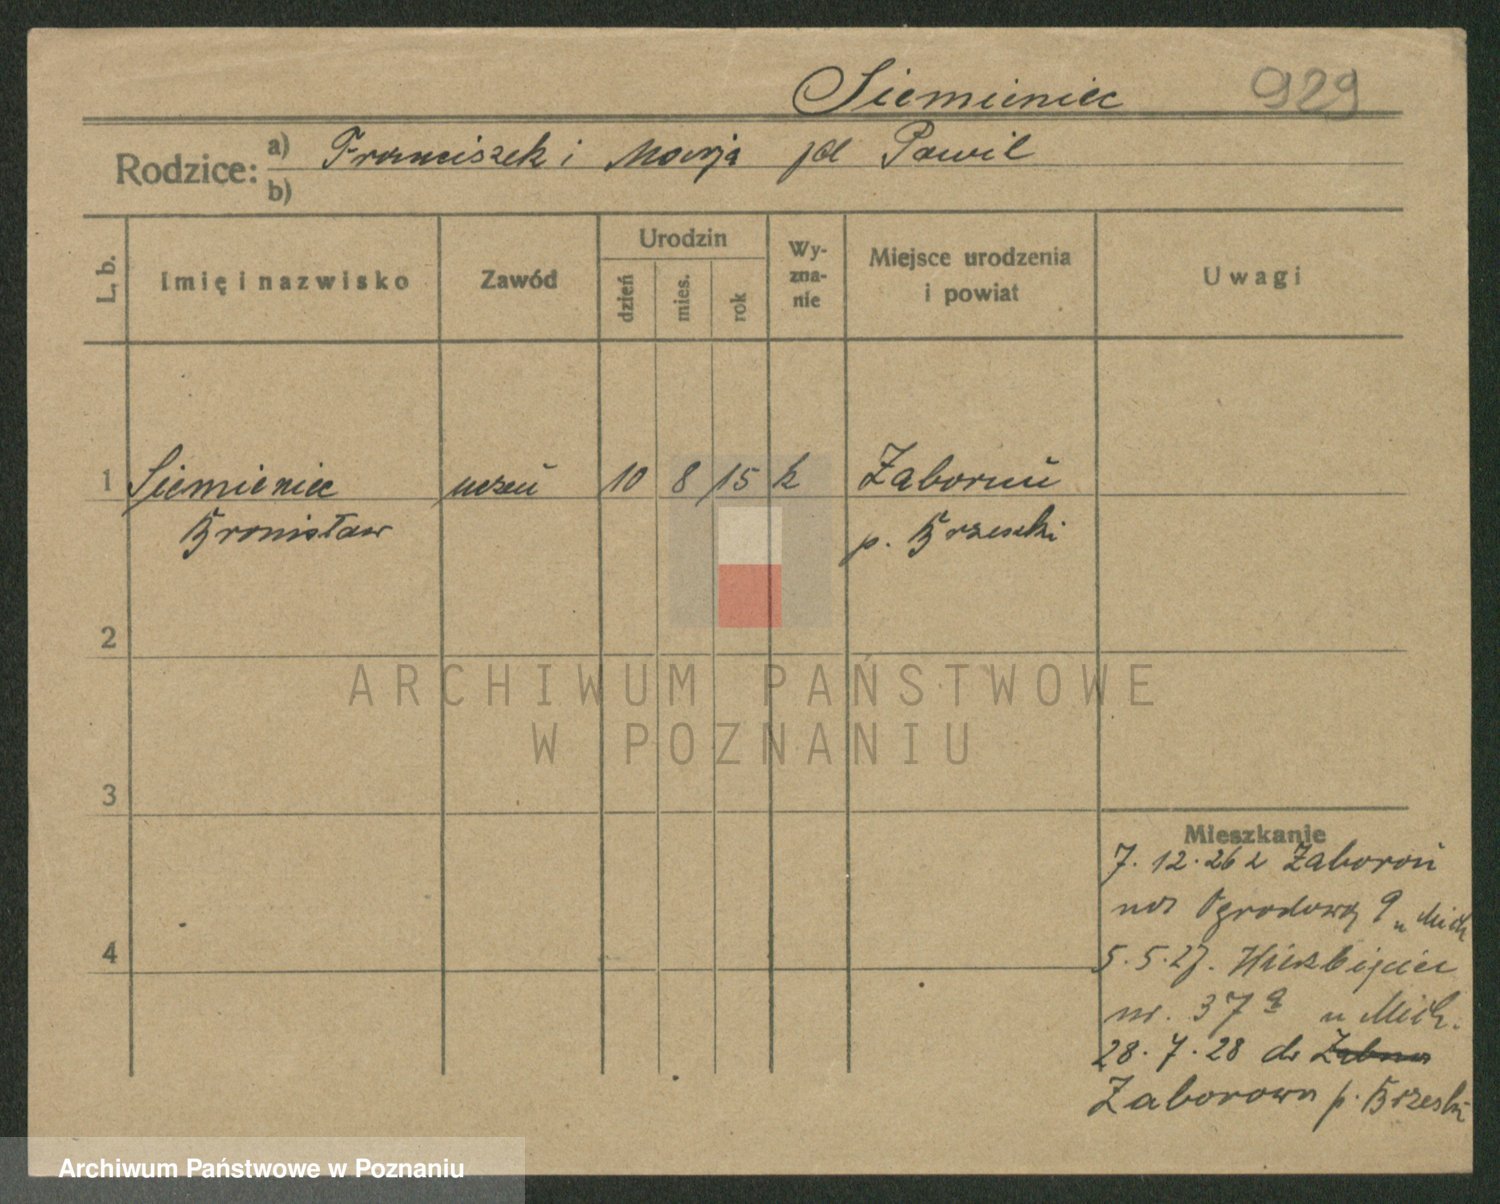 Siemieniec 929
Rodzice: a) Franciszek i Marja
b)
L. b. Imię i nazwisko Zawód Urodzin dzień mies. rok Wy-zna-nie Miejsce urodzenia i powiat Uwagi
1 Siemieniec uczeń 10 8 15 k
Bronisław p. Brzeski
2
ARCHIWUM PAŃSTWOWE
W POZNANIU
3
Mieszkanie
7. 12. 26 z Zaboroń
Ogrodowa 9 u Mich
5. 5. 27.
nr. 37a u Mich.
4
28. 7. 28 do
Zaborowa p. Brzeski
Archiwum Państwowe w Poznaniu